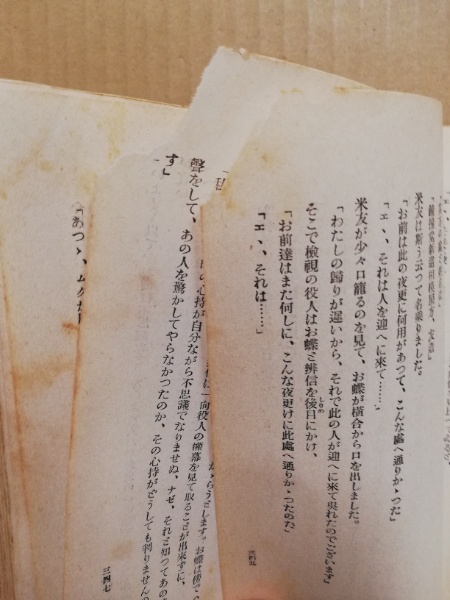 米友は斯う云つて名乘りました。
「お前は此の夜更に何用があつて、こんな處へ通りかゝつた」
「エ、、それは人を迎へに來て……」
米友が少々口籠るのを見て、お蝶が橫合から口を出しました。
「わたしの歸りが遲いから、それで此の人が迎へに來て吳れたのでございます」
そこで檢視の役人はお蝶と辨信を後目にかけ、
「お前達はまた何しに、こんな夜更けに此處へ通りかゝつたのだ」
「エ、、それは……」
三四五
一向役人の擧動を見て取ることが出來ずに、
の心持が自分ながら不思議でなりませぬ、ナゼ、それと知つてあの
聲をして、あの人を驚かしてやらなかつたのか、その心持がどうしても判りませんの
す」
「あつ、、ムクが
三四七